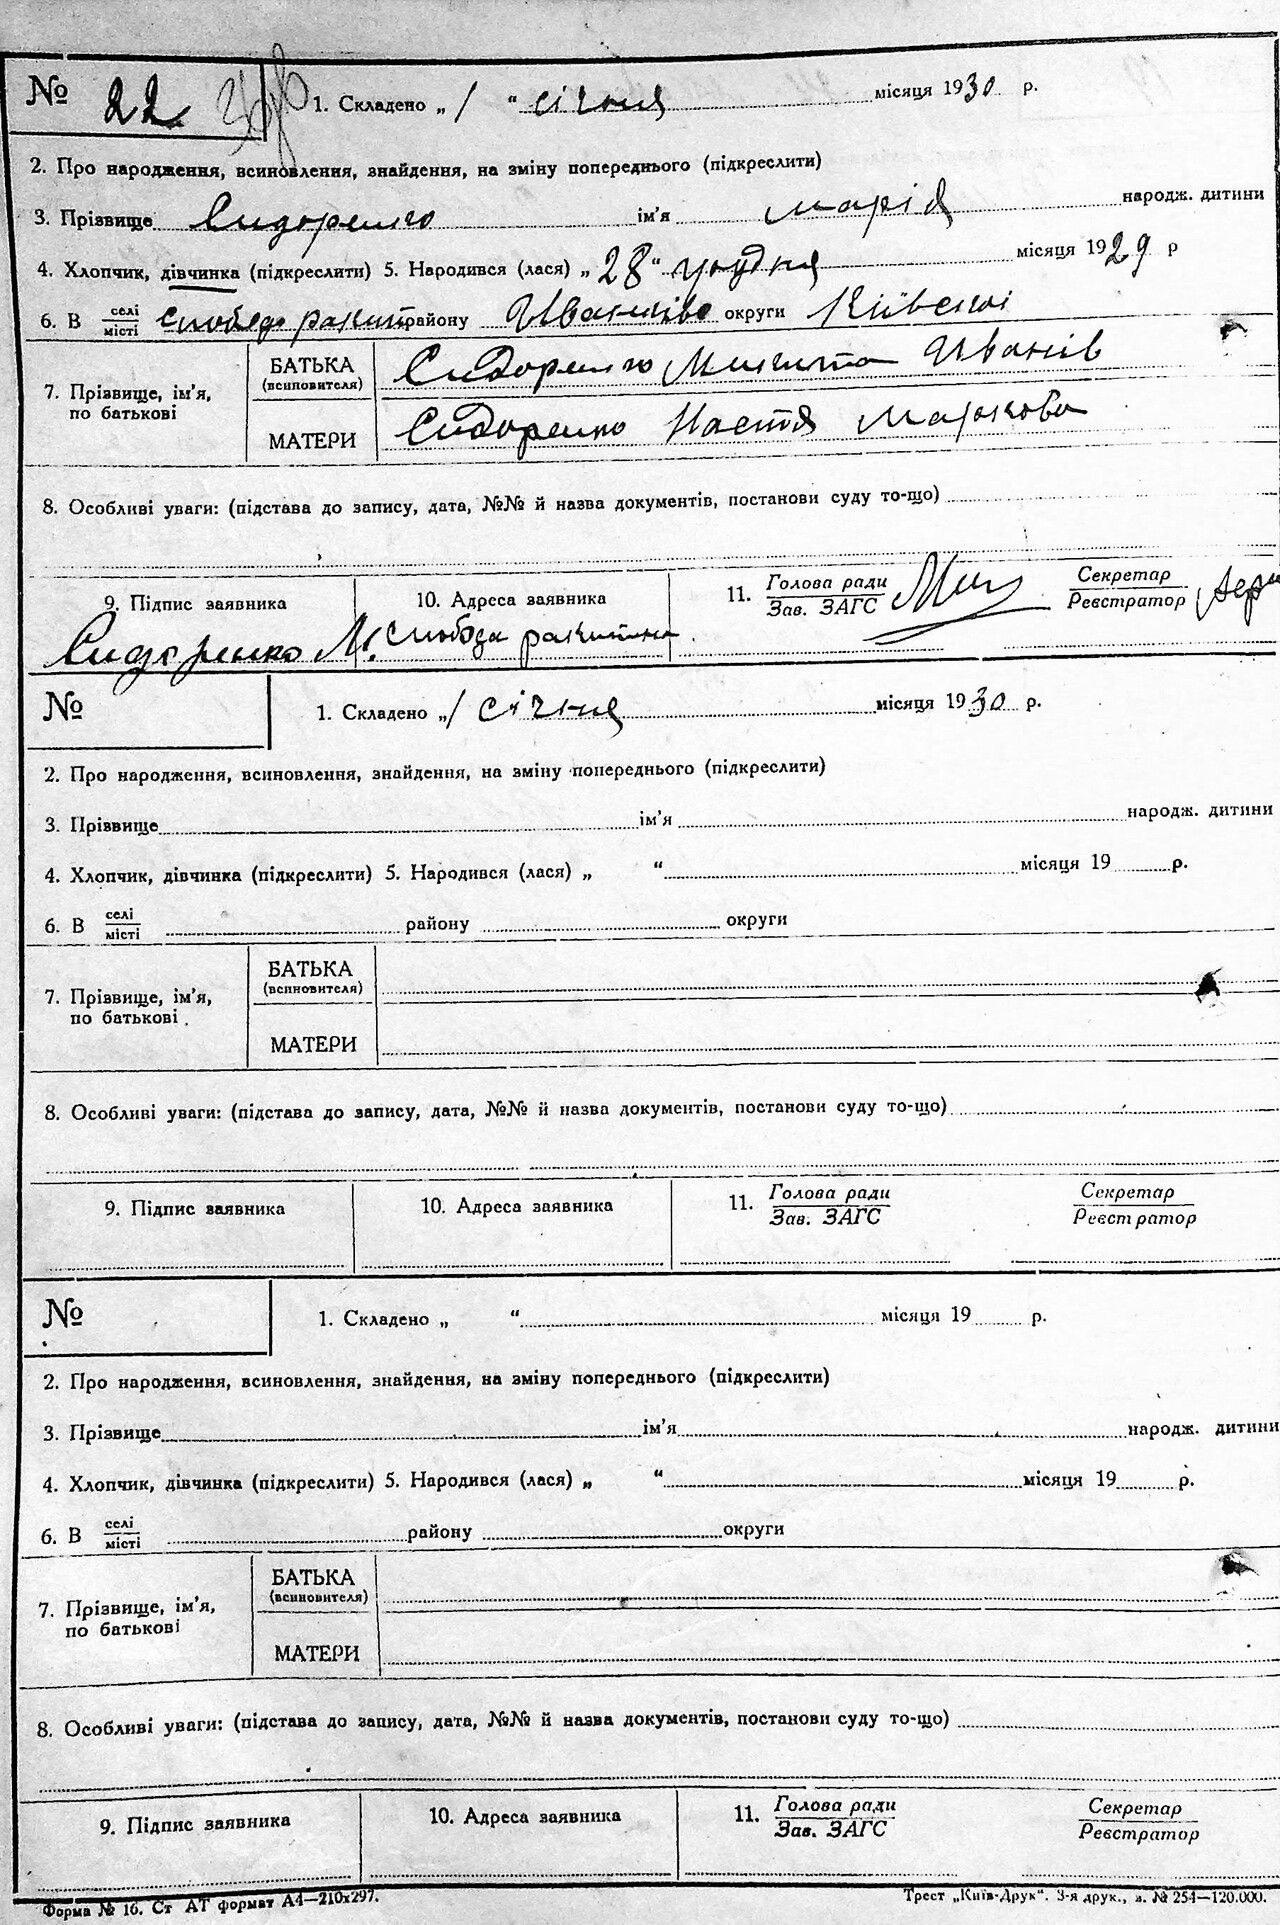 № 22 1. Складено „ 1 “ січня місяця 1930 р.
2. Про народження, всиновлення, знайдення, на зміну попереднього (підкреслити)
3. Прізвище Сидоренко ім'я Марія народж. дитини
4. Хлопчик, дівчинка (підкреслити) 5. Народився (лася) „ 28 “ грудня місяця 1929 р
6. В селі/місті району округи Київської
7. Прізвище, ім'я, по батькові
БАТЬКА (всиновителя) Сидоренко Микита Иванів
МАТЕРИ Сидоренко Настя Маркова
8. Особливі уваги: (підстава до запису, дата, №№ й назва документів, постанови суду то-що)
9. Підпис заявника 10. Адреса заявника 11. Голова ради/Зав. ЗАГС Секретар/Реєстратор
Сидоренко М. слобода ракитина
№ 1. Складено „ 1 січня місяця 1930 р.
2. Про народження, всиновлення, знайдення, на зміну попереднього (підкреслити)
3. Прізвище ім'я народж. дитини
4. Хлопчик, дівчинка (підкреслити) 5. Народився (лася) „ “ місяця 19 р.
6. В селі/місті району округи
7. Прізвище, ім'я, по батькові
БАТЬКА (всиновителя)
МАТЕРИ
8. Особливі уваги: (підстава до запису, дата, №№ й назва документів, постанови суду то-що)
9. Підпис заявника 10. Адреса заявника 11. Голова ради/Зав. ЗАГС Секретар/Реєстратор
№ 1. Складено „ “ місяця 19 р.
2. Про народження, всиновлення, знайдення, на зміну попереднього (підкреслити)
3. Прізвище ім'я народж. дитини
4. Хлопчик, дівчинка (підкреслити) 5. Народився (лася) „ “ місяця 19 р.
6. В селі/місті району округи
7. Прізвище, ім'я, по батькові
БАТЬКА (всиновителя)
МАТЕРИ
8. Особливі уваги: (підстава до запису, дата, №№ й назва документів, постанови суду то-що)
9. Підпис заявника 10. Адреса заявника 11. Голова ради/Зав. ЗАГС Секретар/Реєстратор
Форма № 16. Ст АТ формат А4—210х297. Трест „Київ-Друк“. 3-я друк., з. № 254—120.000.